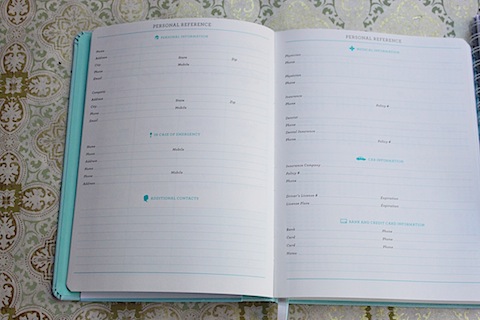 PERSONAL REFERENCE
PERSONAL INFORMATION
Name
Address
City State Zip
Phone Mobile
Email
Company
Address
City State Zip
Phone Mobile
Email
IN CASE OF EMERGENCY
Name
Phone Mobile
Address
Name
Phone Mobile
Address
ADDITIONAL CONTACTS
PERSONAL REFERENCE
MEDICAL INFORMATION
Physician
Phone
Physician
Phone
Insurance
Phone Policy #
Dentist
Phone
Dental Insurance
Phone Policy #
CAR INFORMATION
Insurance Company
Policy #
Phone
Driver's License # Expiration
License Plate Expiration
BANK AND CREDIT CARD INFORMATION
Bank Phone
Card Phone
Card Phone
Notes